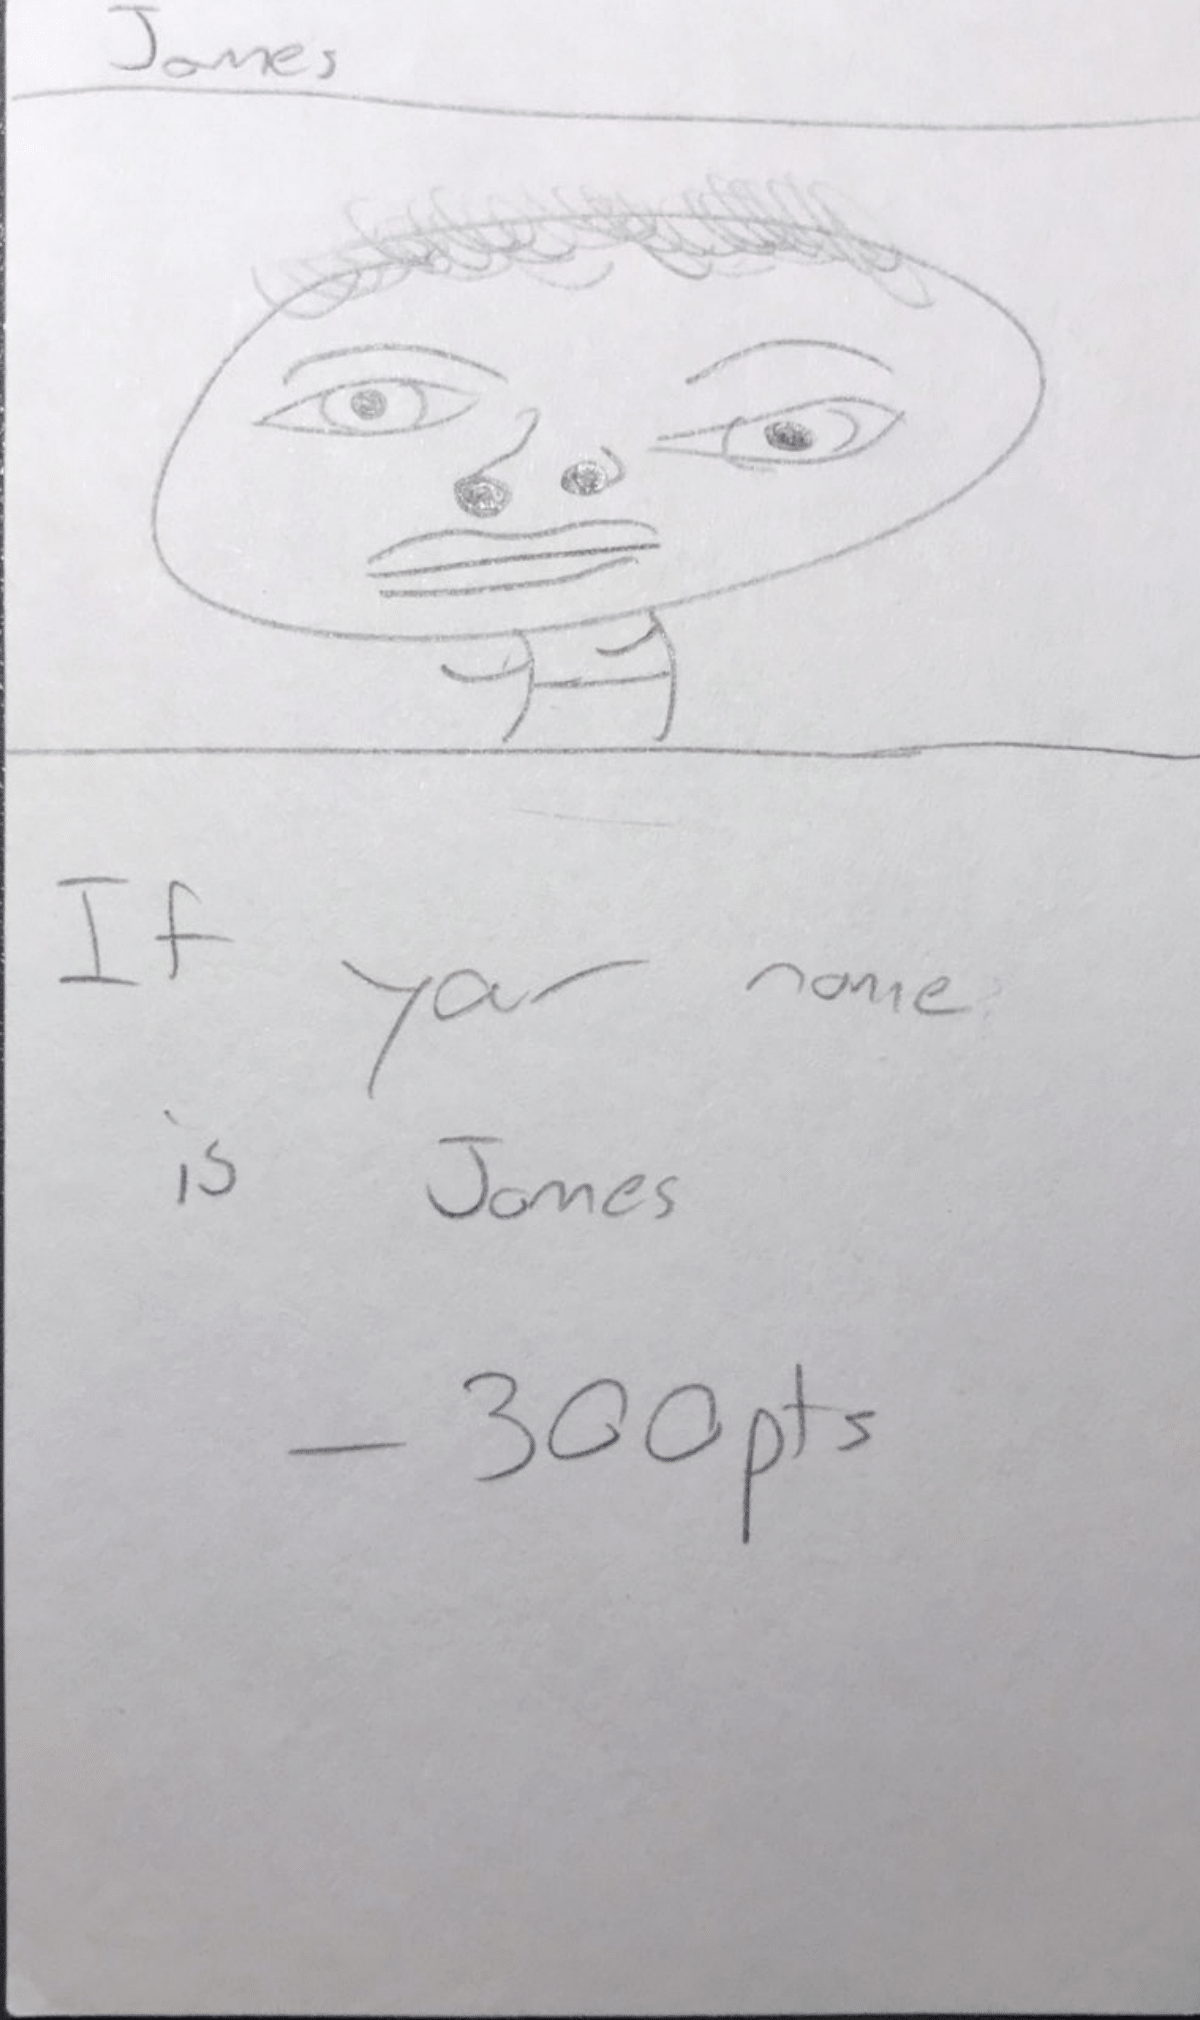 James
If your name
is James
- 300pts